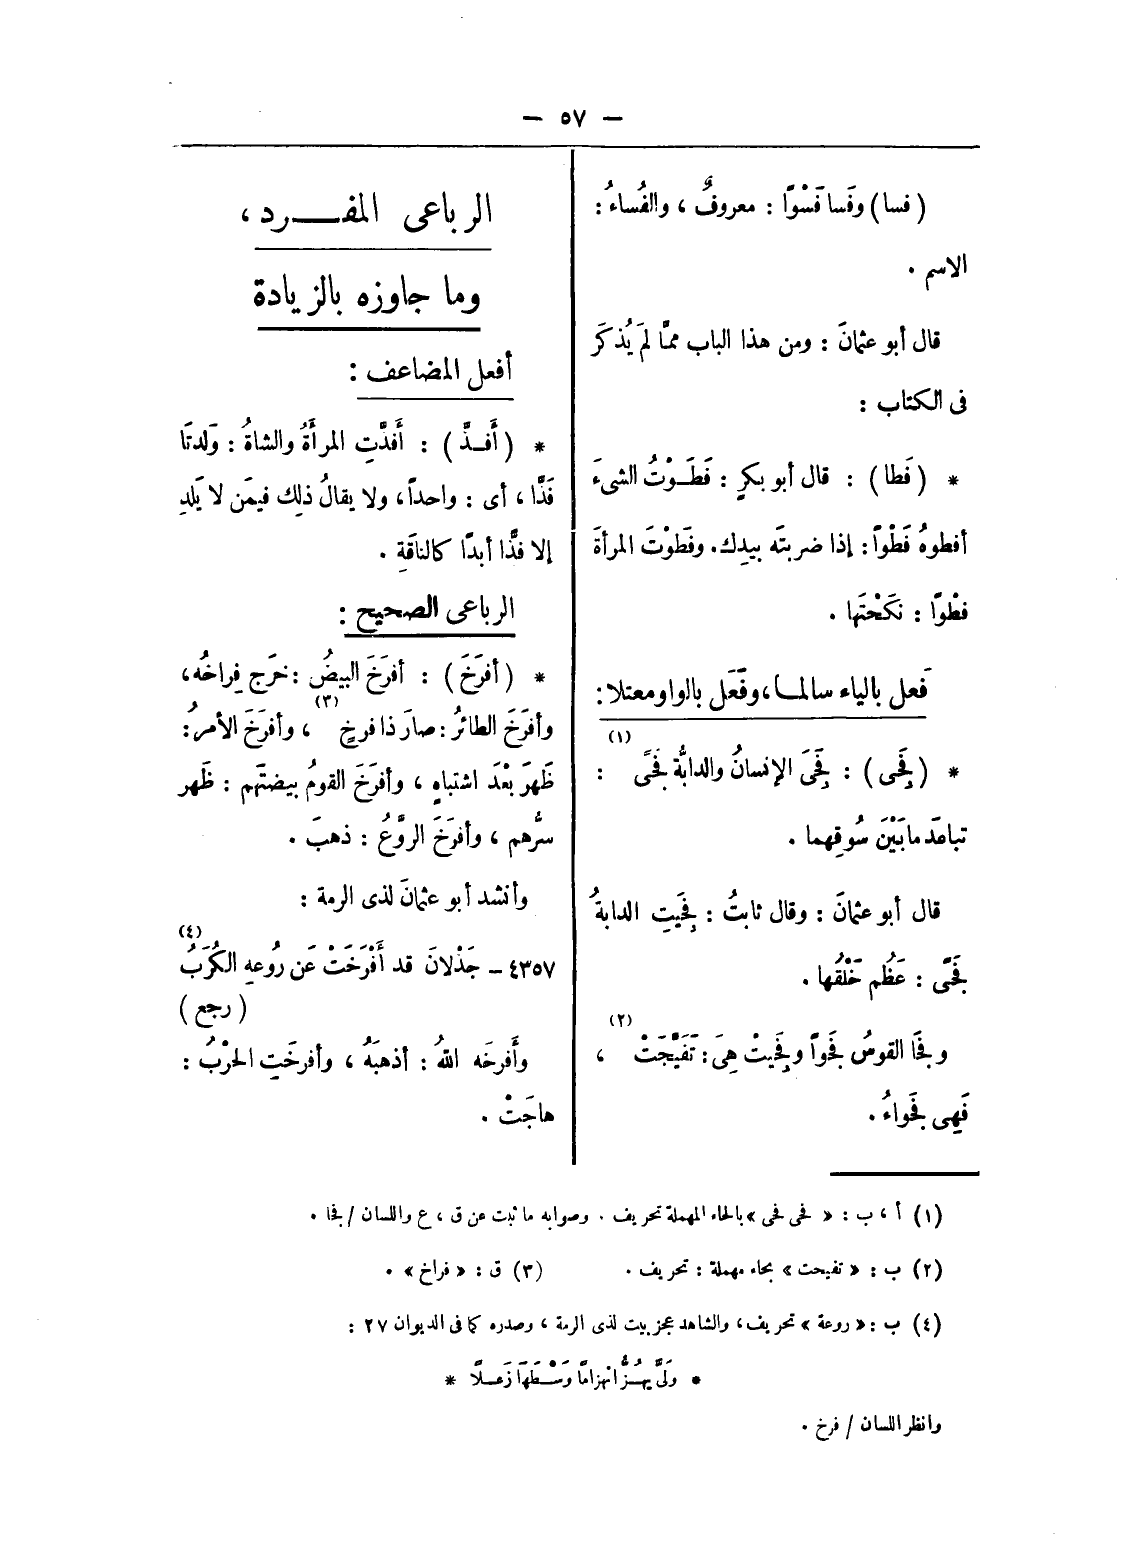 — ٥٧ —
(فسا) وفَسا فَسْوًا : معروفٌ ، والفُساءُ :
الاسم .
قال أبو عثمانَ : ومن هذا الباب ممَّا لمَ يُذكَر
فى الكتاب :
* (فَطا) : قال أبو بكرٍ : فَطَوْتُ الشىءَ
أفطوهُ فَطْواً : إذا ضربتَه بيدِك. وفَطوْتَ المرأةَ
فطْوًا : نكَحْتَها .
فَعل بالياء سالمــا ، وفَعَل بالواو معتلا :
* (فَجِى) : فَجِىَ الإنسانُ والدابَّة فَجًى (١) :
تباعَد مابَيْنَ سُوقِهما .
قال أبو عثمانَ : وقال ثابتُ : فَجِيَتِ الدابةُ
فَجًى : عَظُم خَلْقُها .
وفجَا القوسُ فجْواً وفَجِيتْ هىَ : تَفَيَّجَتْ (٢) ،
فَهِى فَجْواءُ .
الرباعى المفـــرد ،
وما جاوزه بالزيادة
أفعل المضاعف :
* (أَفــذَّ) : أَفذَّتِ المرأَةُ والشاةُ : وَلدتَا
فَذًّا ، أى : واحداً ، ولا يقالُ ذلِك فيمَن لا يَلدِ
إلا فذًّا أبدًا كالناقَةِ .
الرباعى الصحيح :
* (أفرَخَ) : أفرَخَ البيضُ : خرَج فِراخُه ،
وأفرَخَ الطائرُ : صارَ ذا فرخٍ (٣) ، وأفرَخَ الأمرُ :
ظَهرَ بعْدَ اشتباهٍ ، وأفرَخَ القومُ بيضتَهم : ظَهر
سرُّهم ، وأفرَخَ الروَّعُ : ذهبَ .
وأنشد أبو عثمانَ لذى الرمة :
٤٣٥٧ – جَذْلانَ قد أَفْرَخَتْ عَن رُوعهِ الكُرَبُ (٤)
(رجع)
وأَفرخَه اللهُ : أذهبَهُ ، وأفرخَتِ الحرْبُ :
هاجَتْ .
(١) أ ، ب : « فحى فحى » بالحاء المهملة تحريف . وصوابه ما ثبت عن ق ، ع واللسان / فجا .
(٢) ب : « تفيحت » بحاء مهملة : تحريف .    (٣) ق : « فراخ » .
(٤) ب : « روعة » تحريف ، والشاهد عجز بيت لذى الرمة ، وصدره كما فى الديوان ٢٧ :
* وَلَّى يهُــزُّ انهزامًا وَسْــطَهَا زَعــلًا *
وانظر اللسان / فرخ .